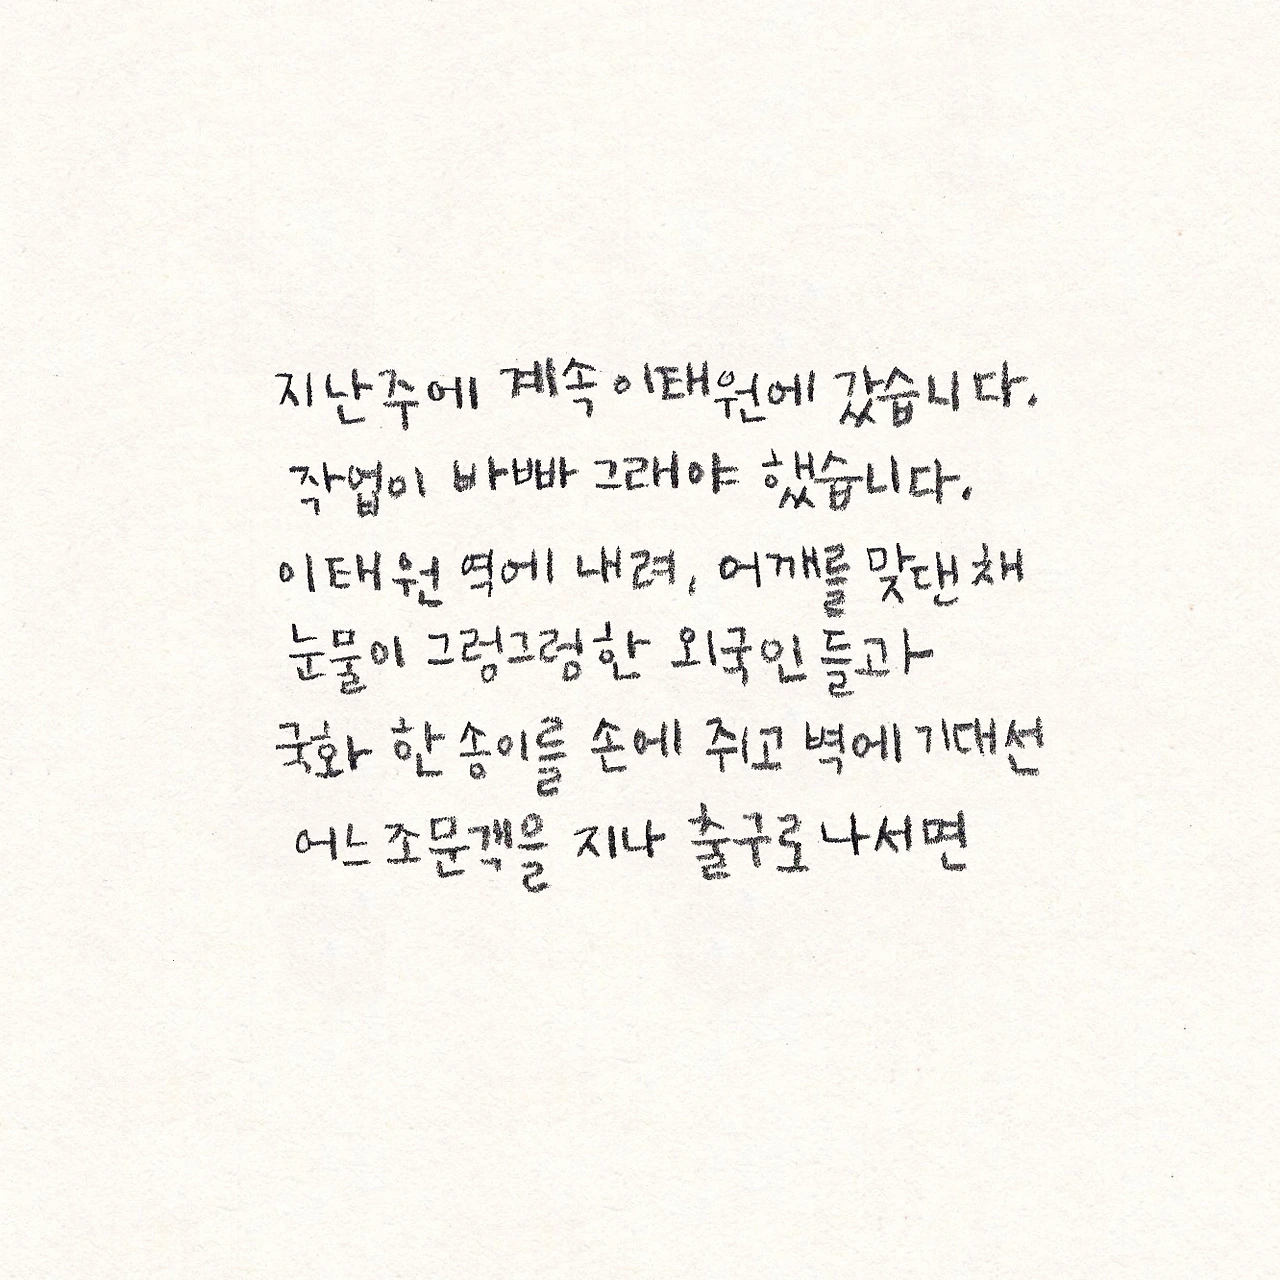 지난주에 계속 이태원에 갔습니다.
작업이 바빠 그래야 했습니다.
이태원 역에 내려, 어깨를 맞댄 채
눈물이 그렁그렁한 외국인들과
국화 한 송이를 손에 쥐고 벽에 기대선
어느 조문객을 지나 출구로 나서면